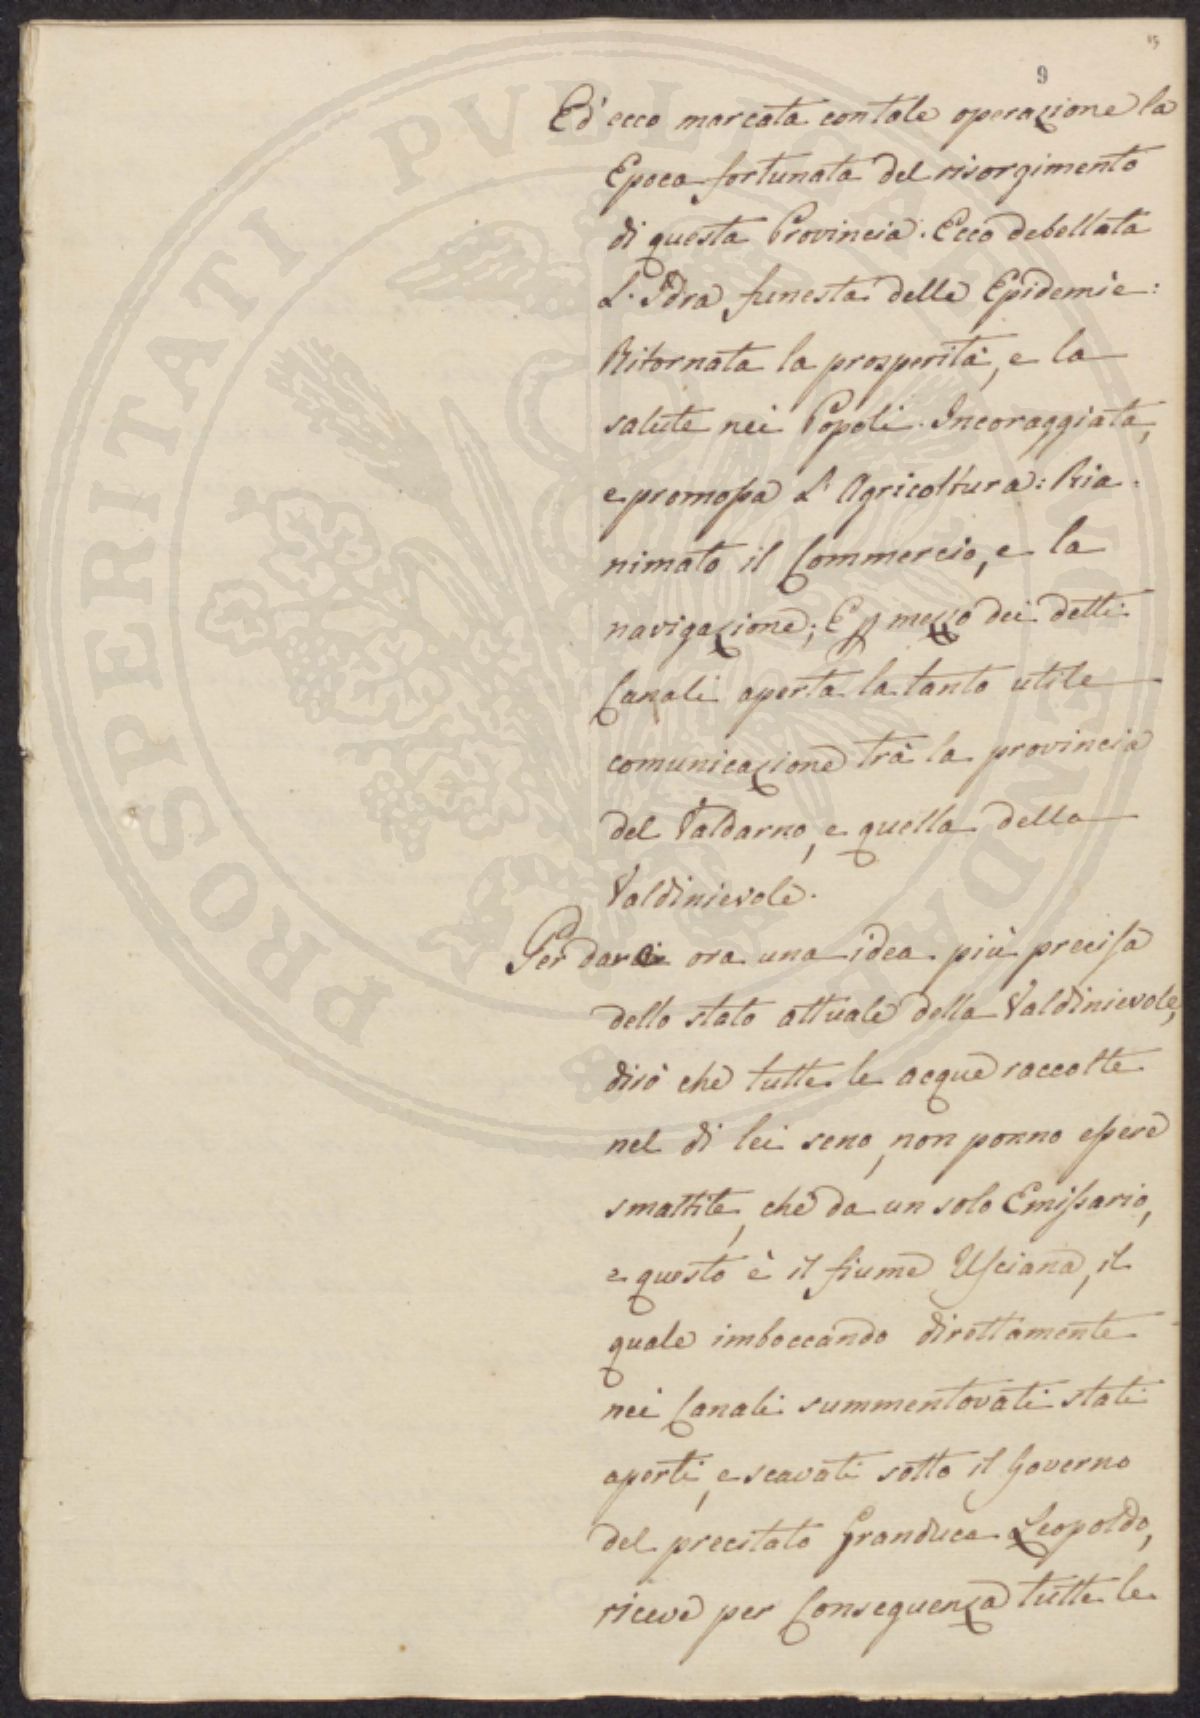 15
9
Ed' ecco marcata con tale operazione la
Epoca fortunata del risorgimento
di questa Provincia. Ecco debellata
L'Idra funesta delle Epidemie:
Ritornata la prosperità, e la
salute nei Popoli. Incoraggiata,
e promossa L'Agricoltura: Ria-
nimato il Commercio, e la
navigazione; E p mezzo dei detti
Canali aperta la tanto utile
comunicazione trà la provincia
del Valdarno, e quella della
Valdinievole.
Per dare ora una idea più precisa
dello stato attuale della Valdinievole,
dirò che tutte le acque raccolte
nel di lei seno, non ponno essere
smaltite, che da un solo Emissario,
e questo è il fiume Usciana, il
quale imboccando direttamente
nei Canali summentovati stati
aperti, e scavati sotto il Governo
del precitato Granduca Leopoldo,
riceve per Conseguenza tutte le
PROSPERITATI PVBLICAE AVGENDAE